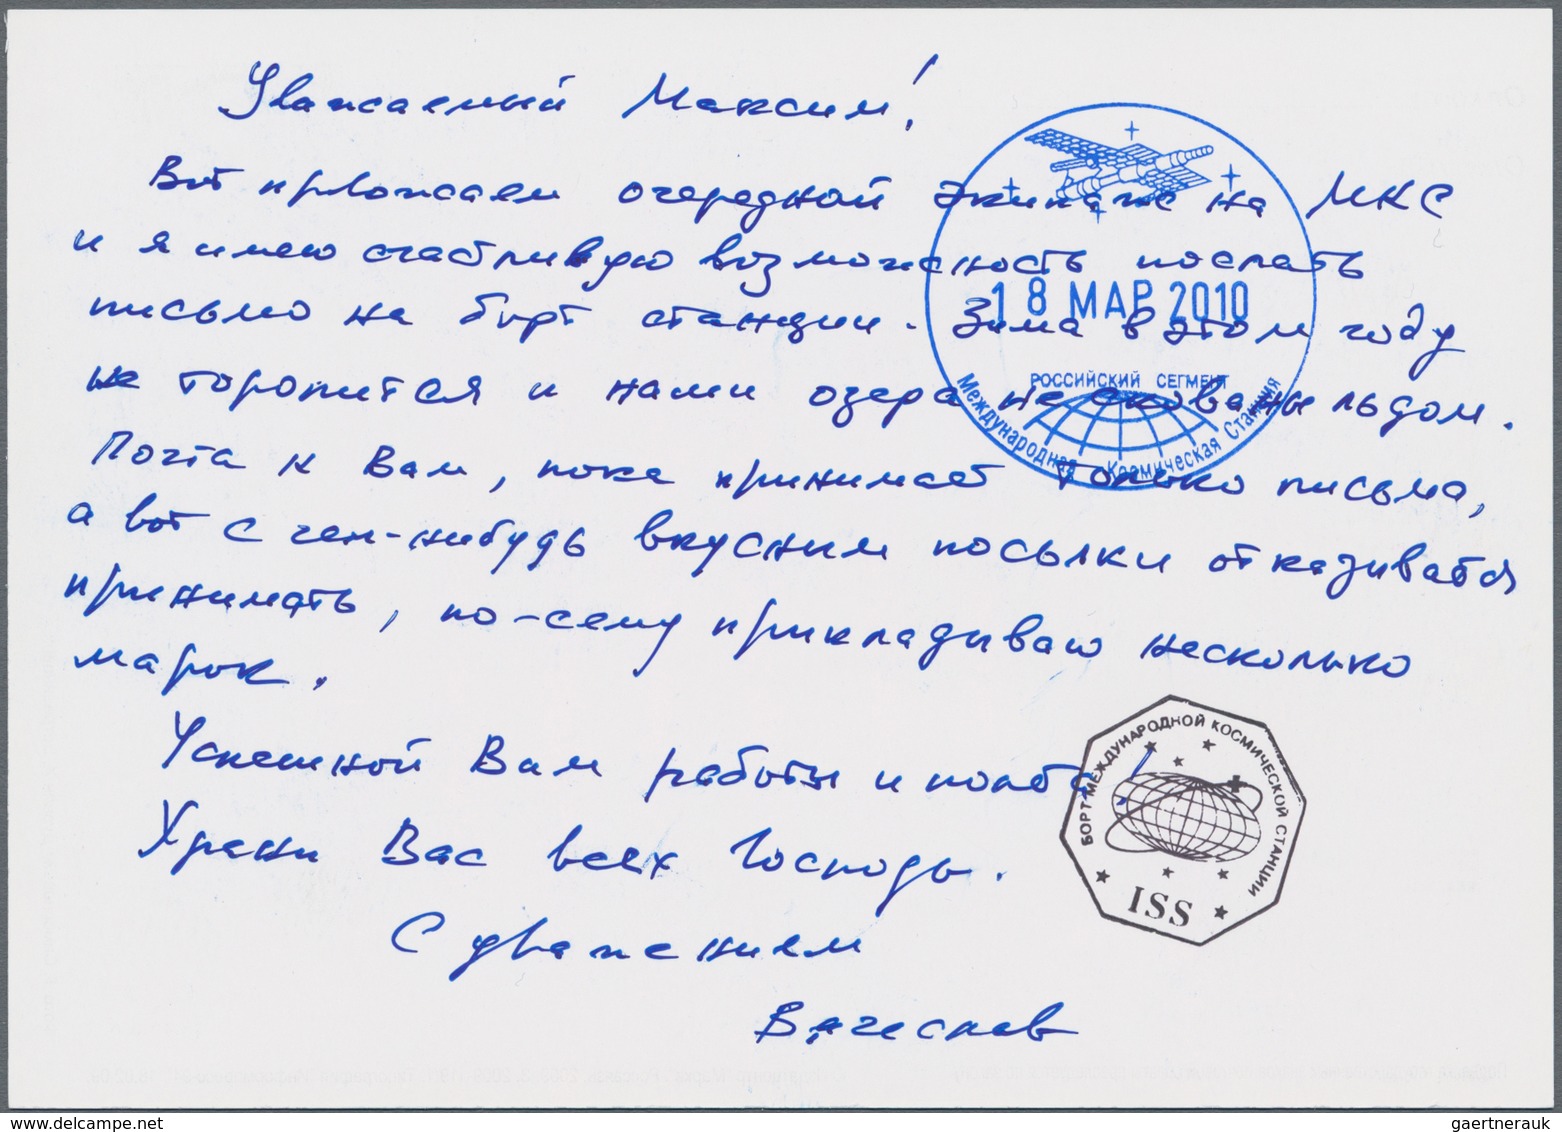 Уважаемый Максим!
Вот провожаем очередной экипаж на МКС
и я имею счастливую возможность послать
письмо на борт станции. Зима в этом году
не торопится и нами озера не скованы льдом.
Почта к Вам, пока принимает только письма,
а вот с чем-нибудь вкусним посылки отказивается
принимать, по-сему прикладываю несколько
марок.
Успешной Вам работы и полёта!
Храни Вас всех Господь.
С уважением
Вячеслав
18 МАР 2010
РОССИЙСКИЙ СЕГМЕНТ
Международная Космическая Станция
БОРТ МЕЖДУНАРОДНОЙ КОСМИЧЕСКОЙ СТАНЦИИ
ISS
gaertnerauk